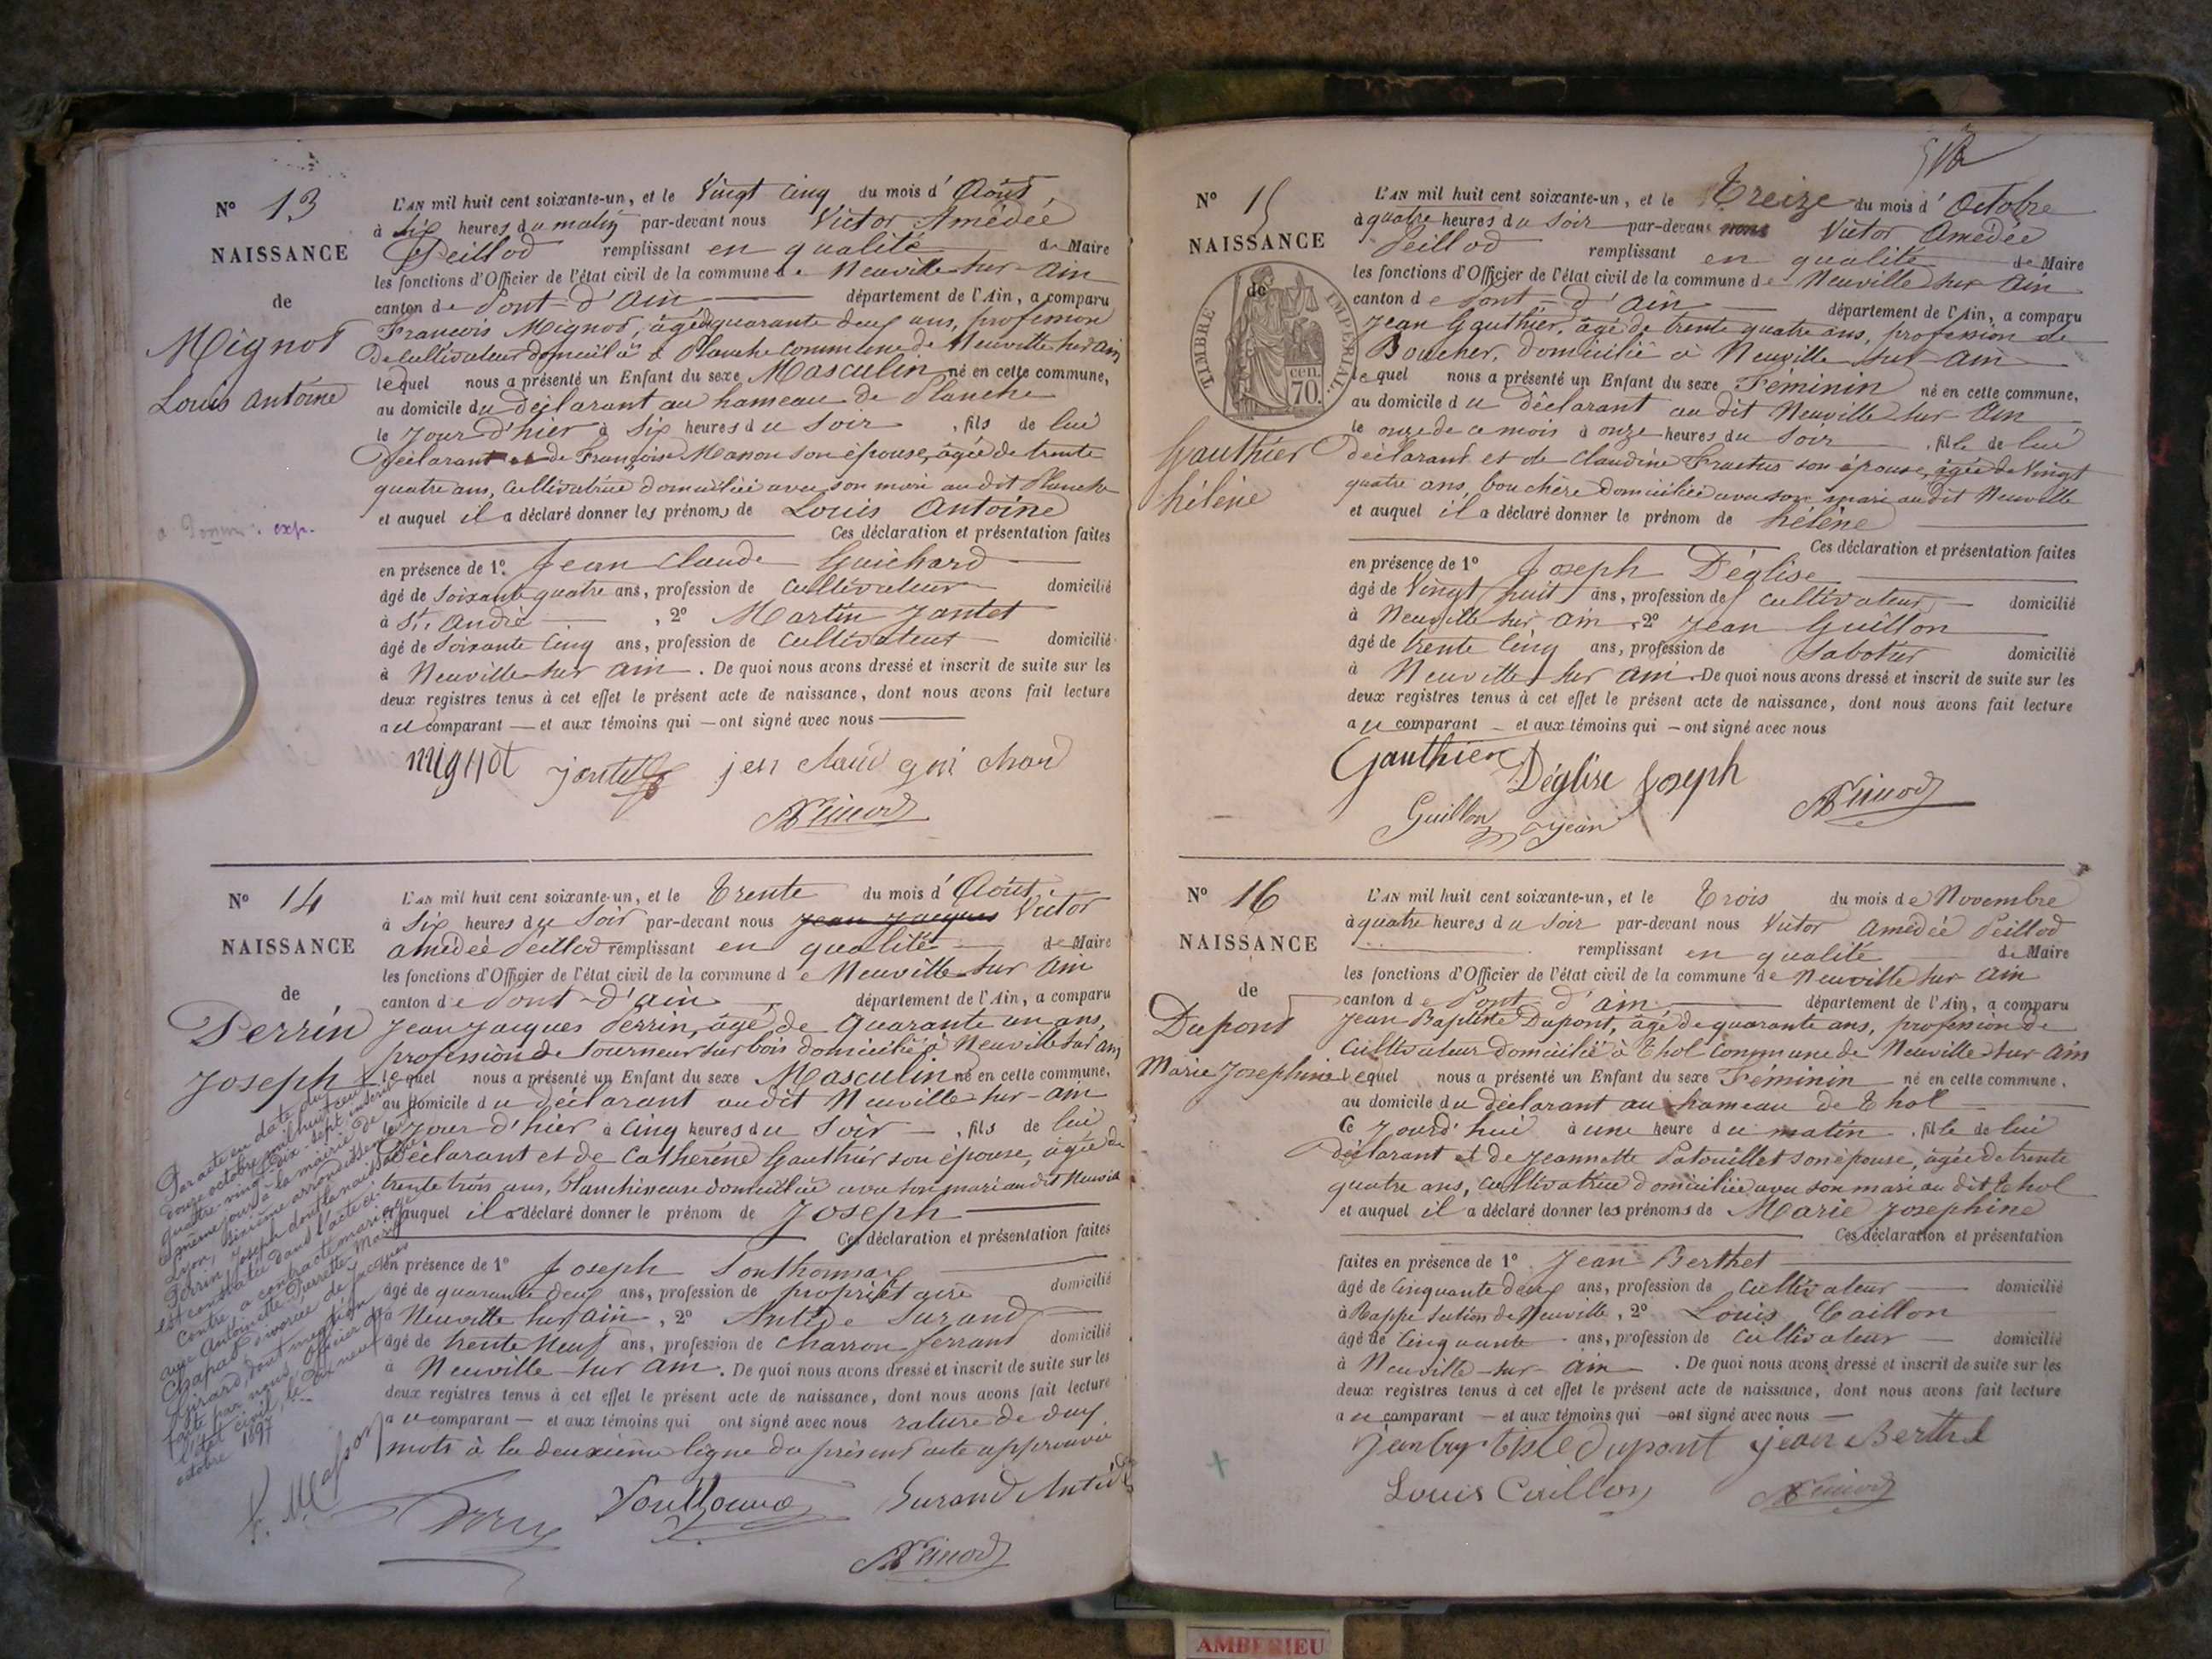 N° 13
NAISSANCE
de
Mignot
Louis Antoine
L'AN mil huit cent soixante-un, et le Vingt Cinq du mois d'Août
à six heures du matin par-devant nous Victor Amédée
Peillod remplissant en qualité de Maire
les fonctions d'Officier de l'état civil de la commune de Neuville sur Ain
canton de Pont d'Ain département de l'Ain, a comparu
François Mignot, âgé de quarante deux ans, profession
de cultivateur domicilié à Planche commune de Neuville sur Ain
lequel nous a présenté un Enfant du sexe Masculin né en cette commune,
au domicile du déclarant au hameau de Planche
le jour d'hier à six heures du soir, fils de lui
déclarant et de Françoise Manon son épouse, âgée de trente
quatre ans, cultivatrice domiciliée avec son mari au dit Planche
et auquel il a déclaré donner les prénoms de Louis Antoine
Ces déclaration et présentation faites
en présence de 1° Jean Claude Guichard
âgé de soixante quatre ans, profession de cultivateur domicilié
à St. André, 2° Martin Jantet
âgé de soixante cinq ans, profession de cultivateur domicilié
à Neuville sur Ain. De quoi nous avons dressé et inscrit de suite sur les
deux registres tenus à cet effet le présent acte de naissance, dont nous avons fait lecture
au comparant — et aux témoins qui — ont signé avec nous —
mignot jantet jen claud gui chard
N° 14
NAISSANCE
de
Perrin
Joseph
L'AN mil huit cent soixante-un, et le Trente du mois d'Août
à six heures du soir par-devant nous Jean Jacques Victor
Amédée Peillod remplissant en qualité de Maire
les fonctions d'Officier de l'état civil de la commune de Neuville sur Ain
canton de Pont-d'Ain département de l'Ain, a comparu
Jean Jacques Perrin, âgé de quarante un ans,
profession de tourneur sur bois domicilié à Neuville sur Ain
lequel nous a présenté un Enfant du sexe Masculin né en cette commune,
au domicile du déclarant au dit Neuville sur-Ain
le jour d'hier à cinq heures du soir —, fils de lui
déclarant et de Catherine Gauthier son épouse, âgée de
trente trois ans, blanchisseuse domiciliée avec son mari au dit Neuville
et auquel il a déclaré donner le prénom de Joseph
Ces déclaration et présentation faites
en présence de 1° Joseph
âgé de quarante deux ans, profession de propriétaire domicilié
à Neuville sur Ain, 2° Antide Durand
âgé de trente neuf ans, profession de charron ferrant domicilié
à Neuville sur Ain. De quoi nous avons dressé et inscrit de suite sur les
deux registres tenus à cet effet le présent acte de naissance, dont nous avons fait lecture
au comparant — et aux témoins qui ont signé avec nous rature de deux
mots à la deuxième ligne du présent acte approuvée
Durand Antide
Par acte en date du
douze octobre mil huit cent
quatre-vingt-dix-sept inscrit
le même jour à la mairie de
Lyon, arrondissement
Perrin, Joseph dont la naissance
est constatée dans l'acte ci-
contre, a contracté mariage
avec Antoinette Pierrette Mary
Chapat divorcée de Jacques
Girard, dont mention
faite par nous, Officier de
l'état civil, le dix neuf
octobre 1897
N° 15
NAISSANCE
de
TIMBRE IMPERIAL
70 cen.
Gauthier
hélène
L'AN mil huit cent soixante-un, et le Treize du mois d'Octobre
à quatre heures du soir par-devant nous Victor Amédée
Peillod remplissant en qualité de Maire
les fonctions d'Officier de l'état civil de la commune de Neuville sur Ain
canton de Pont-d'Ain département de l'Ain, a comparu
Jean Gauthier, âgé de trente quatre ans, profession de
Boucher, domicilié à Neuville sur Ain
lequel nous a présenté un Enfant du sexe Féminin né en cette commune,
au domicile du déclarant au dit Neuville sur Ain
le onze de ce mois à onze heures du soir, fille de lui
déclarant et de Claudine son épouse, âgée de Vingt
quatre ans, bouchère domiciliée avec son mari au dit Neuville
et auquel il a déclaré donner le prénom de hélène
Ces déclaration et présentation faites
en présence de 1° Joseph Déglise
âgé de Vingt huit ans, profession de cultivateur domicilié
à Neuville sur Ain, 2° Jean Guillon
âgé de trente cinq ans, profession de Sabotier domicilié
à Neuville sur Ain. De quoi nous avons dressé et inscrit de suite sur les
deux registres tenus à cet effet le présent acte de naissance, dont nous avons fait lecture
au comparant — et aux témoins qui — ont signé avec nous
Gauthier Déglise Joseph
Guillon jean
N° 16
NAISSANCE
de
Dupont
Marie Josephine
L'AN mil huit cent soixante-un, et le Trois du mois de Novembre
à quatre heures du soir par-devant nous Victor Amédée Peillod
remplissant en qualité de Maire
les fonctions d'Officier de l'état civil de la commune de Neuville sur Ain
canton de Pont-d'Ain département de l'Ain, a comparu
Jean Baptiste Dupont, âgé de quarante ans, profession de
cultivateur domicilié à Thol commune de Neuville-sur-Ain
lequel nous a présenté un Enfant du sexe Féminin né en cette commune,
au domicile du déclarant au hameau de Thol
Ce jourd'hui à une heure du matin, fille de lui
déclarant et de Jeannette Patouillet son épouse, âgée de trente
quatre ans, cultivatrice domiciliée avec son mari au dit Thol
et auquel il a déclaré donner les prénoms de Marie Josephine
Ces déclaration et présentation
faites en présence de 1° Jean Berthet
âgé de cinquante deux ans, profession de cultivateur domicilié
à Rappe section de Neuville, 2° Louis Caillon
âgé de cinquante ans, profession de cultivateur domicilié
à Neuville-sur-Ain. De quoi nous avons dressé et inscrit de suite sur les
deux registres tenus à cet effet le présent acte de naissance, dont nous avons fait lecture
au comparant — et aux témoins qui — ont signé avec nous —
jean baptiste dupont jean Berthet
Louis Caillon
AMBERIEU